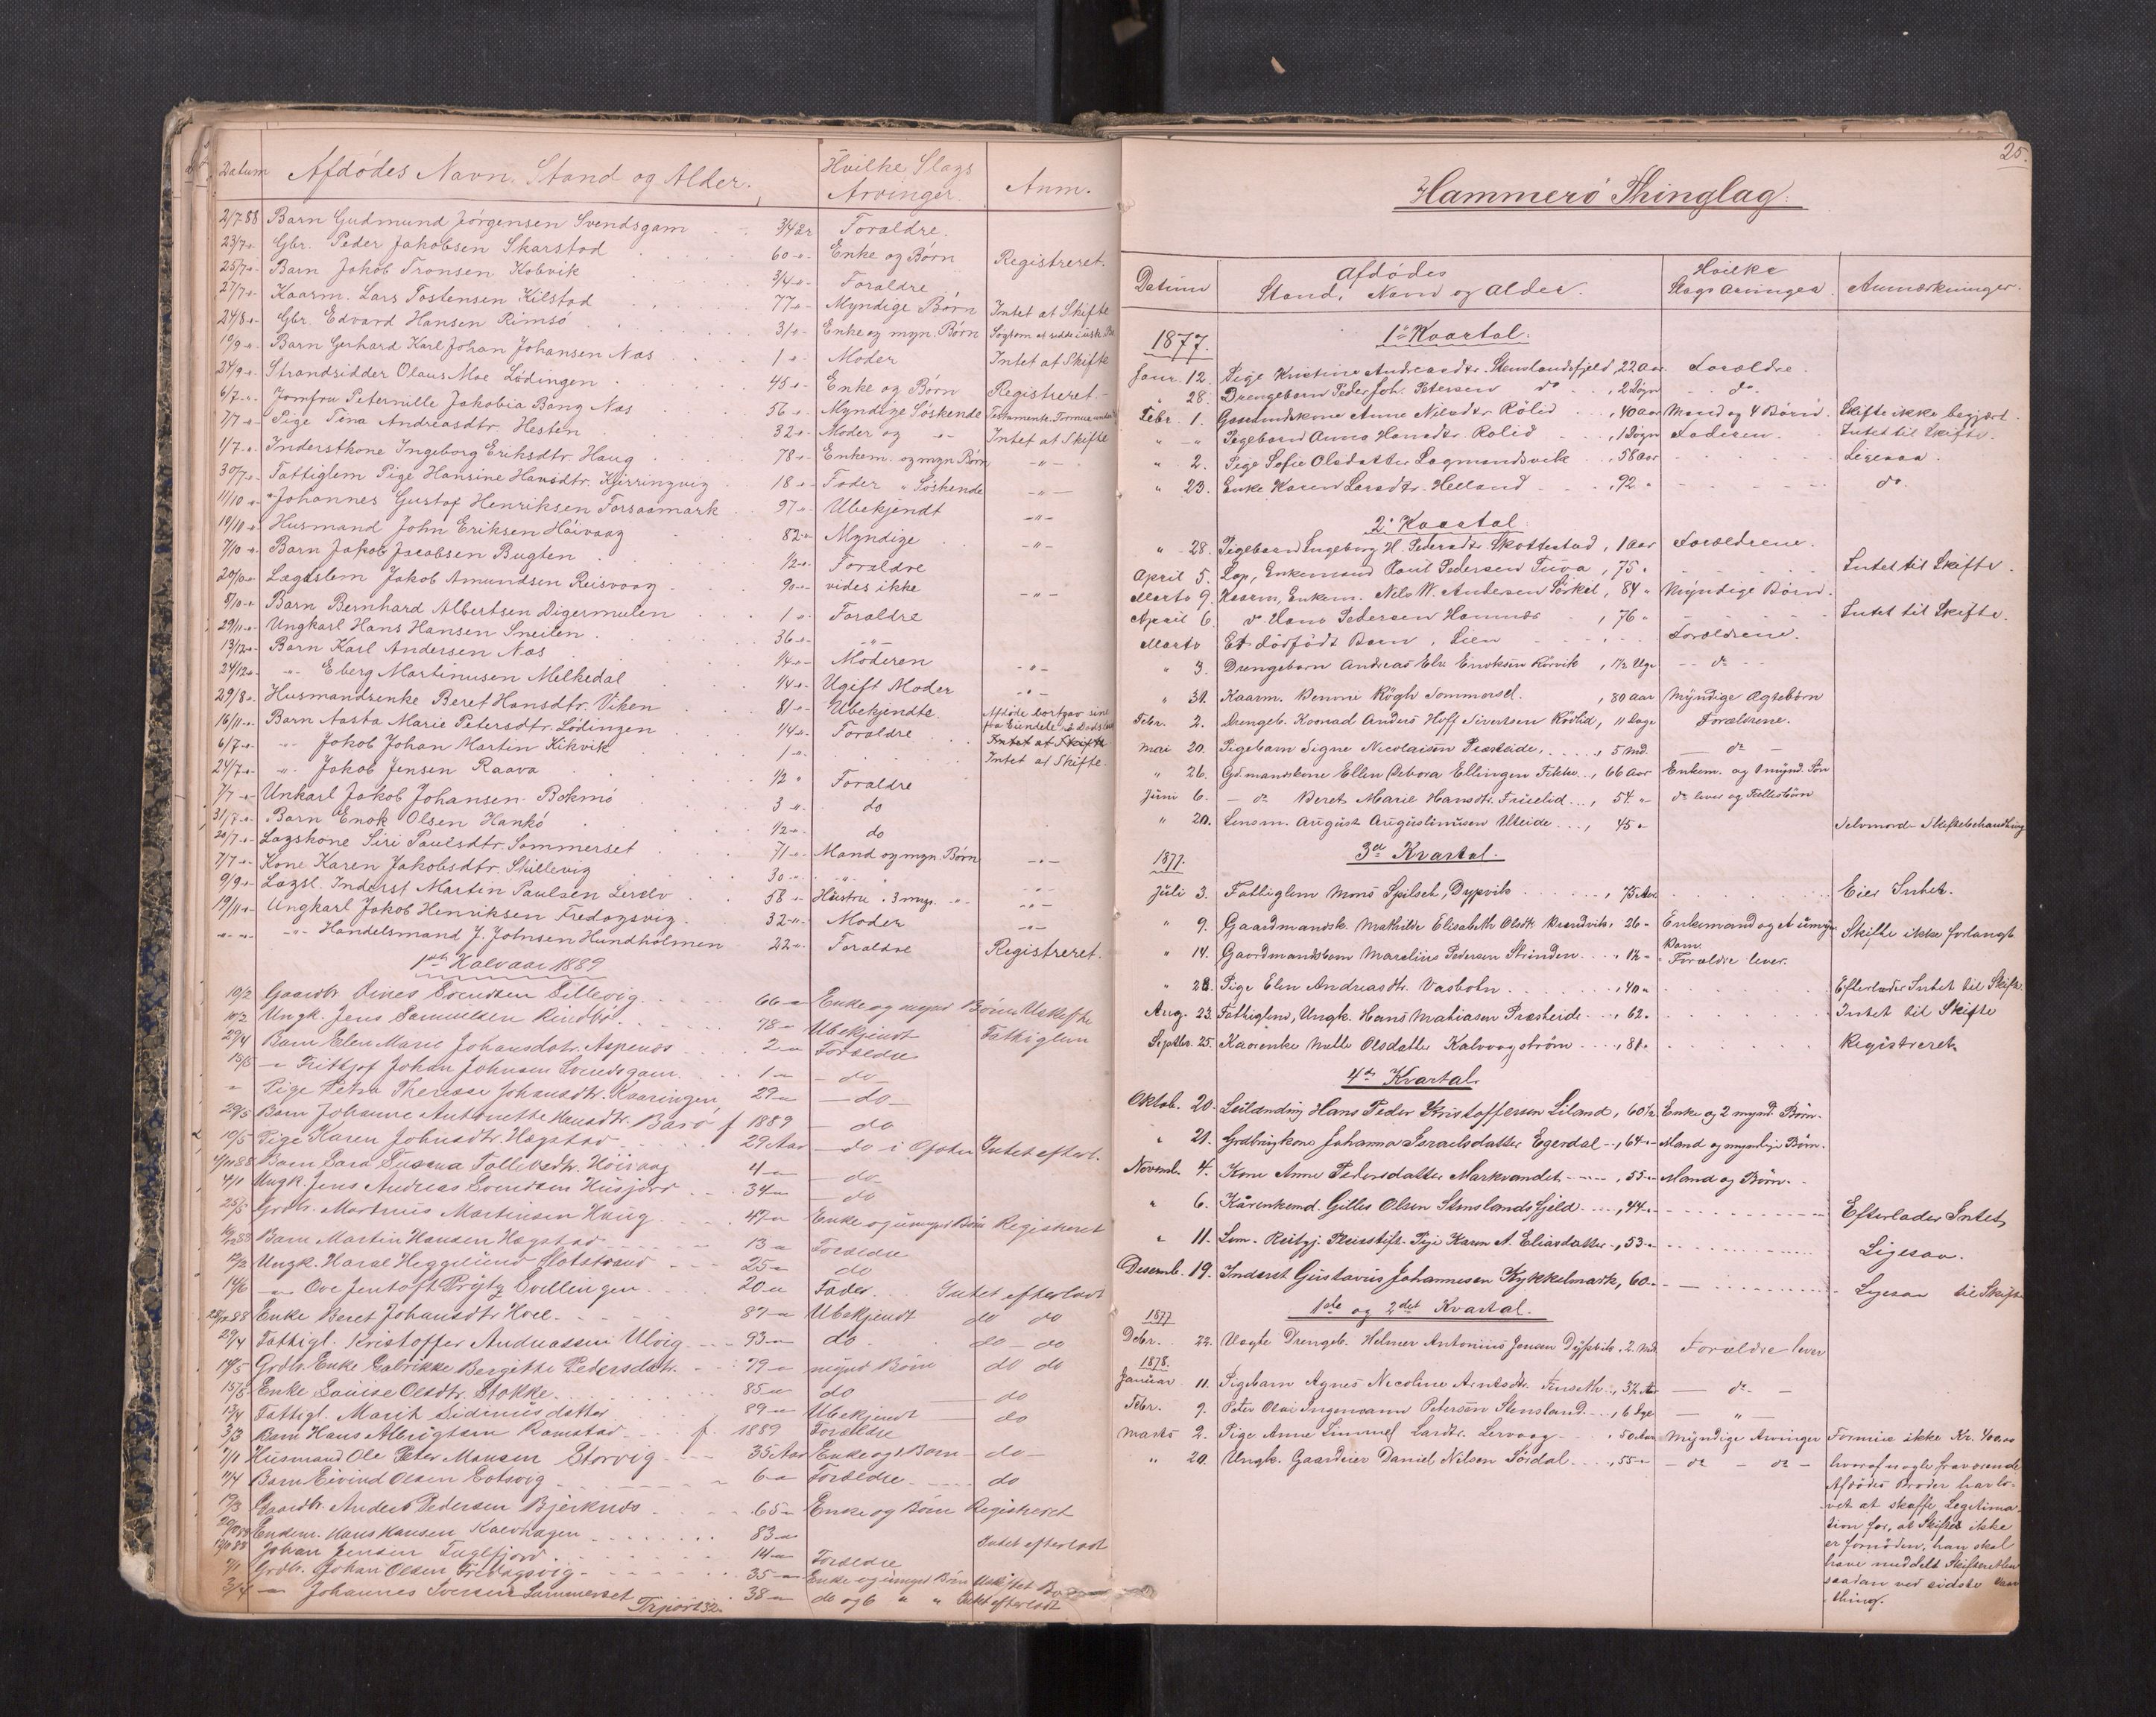 Datum Afdödes Navn, Stand og Alder. Hvilke Slags Arvinger. Anm.
2/7 88 Barn Gudmund Jörgensen Svendsgam 3/4 Aar Foraldre.
23/7 -"- Gbr. Peder Jakobsen Skarstad 60 -"- Enke og Börn Registreret.
25/7 -"- Barn Jakob Tronsen Kobvik 3/4 -"- Foraldre
27/7 -"- Kaarm. Lars Tostensen Kilstad 77 -"- Myndige Börn Intet at Skifte
24/8 -"- Gbr. Edvard Hansen Rimsö 31 -"- Enke og myn. Börn
10/9 -"- Barn Gerhard Karl Johan Johansen Næs 1 -"- Moder Intet at Skifte
24/9 -"- Strandsidder Olaus Moe Lödingen 45 -"- Enke og Börn Registreret.-
6/7 -"- Jomfru Peternille Jakobia Bang Næs 56 -"- Myndige Söskende
7/7 -"- Pige Tina Andreasdtr. Hesten 32 -"- Moder og -"- Intet at Skifte
1/7 -"- Inderstkone Ingeborg Eriksdtr. Haug 78 -"- Enkem. og myn Börn -"-
30/7 -"- Fattiglem Pige Hansine Hansdtr. Kjirringvig 18 -"- Fader " Söskende -"-
11/10 -"- Johannes Gustaf Henriksen Forsaamark 97 -"- Ubekjendt -"-
19/10 -"- Husmand John Eriksen Håivaag 82 -"- Myndige -"-
7/10 -"- Barn Jakob Jacobsen Bugten 1/2 -"- Foraldre
20/10 -"- Lægdslem Jakob Amundsen Reisvaag 90 -"- vides ikke -"-
8/10 -"- Barn Bernhard Albertsen Digermulen 1 -"- Foraldre
29/11 -"- Ungkarl Hans Hansen Sneilen 36 -"- -"-
13/12 -"- Barn Karl Andersen Næs 1/4 -"- Moderen -"-
24/12 -"- -"- Eberg Martinusen Melkedal 1/4 -"- Ugift Moder -"-
29/8 -"- Husmandsenke Beret Hansdtr. Viken 81 -"- Ubekjendte Afdöde bortgav sine
16/11 -"- Barn Aasta Marie Petersdtr. Lödingen 1/4 -"- Foraldre Intet at Skifte
6/7 -"- -"- Jakob Johan Martin Kikvik 1 -"- Intet at Skifte.
24/7 -"- -"- Jakob Jensen Raava 1/2 " Foraldre
7/7 -"- Unkarl Jakob Johansen Bokmö 3 -"- do
31/8 -"- Barn Enok Olsen Hankö 1/2 -"- do
20/7 -"- Lagskone Siri Paulsdtr. Sommerset 71 -"- Mand og myn. Börn -"-
7/7 -"- Kone Karen Jakobsdtr. Skillevig 30 -"- -"-
9/9 -"- Lægsl. Inderst Martin Paulsen 58 -"- Hustru . 3 myn. -"- -"-
19/11 -"- Ungkarl Jakob Henriksen Fredagsvig 32 -"- Moder -"-
-"- -"- -"- Handelsmand J. Johnsen Hundholmen 22 -"- Foraldre Registreret.
1ste Halvaar 1889
10/2 Gaardbr. Dines Svendsen Sillevig 66 -"- Enke og mynd Börn Uskifte
10/2 Ungk. Jens Samuelsen 78 -"- Ubekjendt Fattiglem
29/4 Barn Elen Marie Johansdatr. Aspenæs 2 -"- Forældre
15/5 -"- Frithjof Johan Johnsen Svendsgam. 1 -"- do
" Pige Petra Theresie Johansdtr. Kaaringen 29 -"- do
29/5 Barn Johanne Antonette Hansdtr. Barö f 1889 - do
10/5 Pige Karen Johnsdtr. Hægstad 29 Aar - do i Ofoten Intet efterl.
4/11 88 Barn Sara Susana Tollevsdtr. Höivaag 4 -"- do
4/1 Ungk. Jens Andreas Svendsen Husjord 34 -"- do
25/5 Grdbr. Martinus Martensen Haug 47 -"- Enke og umynd Börn Registreret
16/12 88 Barn Martin Hansen Hægstad 13 -"- Forældre
12/2 Ungk. Harae Heggelund 25 -"- do
14/6 -"- Ove Jentoft Prytz Svellingen 20 -"- Fader. Intet efterladt
28/12 88 Enke Beret Johansdtr. Hoel 87 -"- Ubekjendt do do
29/4 Fattigl. Kristoffer Andreassen Ulvig 93 -"- do do - do
14/5 Grdbr. Enke Galrikke Bergitte Pedersdatr. 79 -"- mynd Börn do do
15/5 Enke Louise Olsdtr. Stokke 85 -"- do do
13/4 Fattigl. Marit Sidiniusdatter 89 -"- Ubekjendt do
3/3 Barn Hans Albrigtsen Ramstad f. 1889 Forældre
1/1 Husmand Ole Peter Monsen Storvig 35 Aar Enke og 1 Barn - do -
11/4 Barn Eivind Olsen 6 -"- Forældre do
19/3 Gaardbr. Anders Pedersen Bjerknæs 65 -"- Enke og Börn Registreret
Enkem. Hans Hansen Kalvhagen 83 -"- Intet efterladt
Johan Jensen Fuglfjord 14 -"- Forældre
7/1 Grdbr. Johan Olsen Fredagsvig 35 -"- Enke og umynd Börn Uskiftet Bo
3/4 -"- Johannes Iversen Sommerset 38 -"- do og 6 " " Intet efterladt
25.
Hammerö Thinglag.
Datum Afdödes Stand, Navn og Alder. Hvilke Slags Arvinger. Anmærkninger.
1877. 1ste Kvartal.
Janr. 12. Pige Kristine Andreasdtr. Stenslandsfjeld, 22 Aar. Forældre.
" 28. Drengebarn Peder Joh. Petersen do , 2 Dögn do.
Febr. 1. Gaardmandskone Anne Nilsdtr. Rölid , 40 Aar Mand og 4 Börn. Skifte ikke begjært.
" -"- Pigebarn Anna Hansdtr. Rolid , 1 Dögn Faderen. Intet til Skifte.
" 2. Pige Sofie Olsdatter Lagmandsvik , 58 Aar Ligesaa
" 23. Enke Karen Larsdtr. Helland , 92 " do.
2. Kvartal.
" 28. Pigebarn Ingeborg H. Pedersdtr. Skottestad , 1 Aar Forældrene.
April 5. Lap, Enkemand Poul Pedersen Tuva , 75 " Intet til Skifte.
Marts 9. Kaarm, Enkem. Nils W. Andersen Sörkil , 84 " Myndige Börn.
April 6. do Hans Pedersen Hamnæs , 76 " Intet til Skifte.
Marts Et dödfödt Barn, Lien Forældrene.
" 3. Drengebarn Andreas Eln Enoksen Korvik , 1 1/2 Uge - do -
" 31. Kaarm. Benoni Rögh Sommersel. , 80 Aar Myndige Ægtebörn
Febr. 2. Drengeb. Konrad Anders Hoff Sivertsen Rödlid, 11 Dage Forældrene.
Mai 20. Pigebarn Signe Nicolaisen Præsteide, , 5 Md. - do -
" 26. Gdmandskone Ellen Debora Ellingsen , 66 Aar Enkem. og 1 mynd. Sön
Juni 6. - do Beret Marie Hansdtr. , 54 " do lever og Fællesbörn
" 20. Lensm. August Augustinusen Uteide , 45 " Selvmord - Skiftebehandling
1877. 3die Kvartal.
Juli 3. Fattiglem Mons Spilset, Dypvik , 75 Aar Eier Intet.
" 9. Gaardmandsk. Mathilde Elisabeth Olsdt. Brandvik, 26 " Enkemand og et umyn. Skifte ikke forlangt
Barn.
" 14. Gaardmandsbarn Marelius Pedersen Strinden , 1 1/2 " Forældre lever.
" 28. Pige Elen Andreasdtr. Vasbotn , 40 " Efterlader Intet til Skifte
Aug. 23. Fattiglem, Ungk. Hans Mathiasen Præsteide , 62. Intet til Skifte
Septbr. 25. Kaarenke Malle Olsdatter Kalvaagström , 81. Registreret.
4de Kvartal.
Oktob. 20. Leilænding Hans Peder Kristoffersen Liland, 60 1/2 Enke og 2 mynd. Börn.
" 21. Grdbrugkone Johanna Israelsdatter Egerdal , 64 " Mand og myndige Börn.
Novemb. 4. Kone Anne Pedersdatter Markvandet , 55 " Mand og Börn.
" 6. Kårenkemd. Gilles Olsen Stenslandsfjeld , 44 " Efterlader Intet,
" 11. Lem. Pige Karen A. Eliasdatter , 53 " Ligesaa.
Desemb. 19. Inderst Gustavus Johannesen Kykkelmark, 60 " Ligesaa til Skifte
1877 1ste og 2det Kvartal.
Debr. 22. Uægte Drengeb. Helmer Antonius Jensen Dypvik . 2. Md. Forældre lever
1878.
Januar 11. Pigebarn Agnes Nicoline Arntsdtr. Finseth , 3 1/2 Aar - do -
Febr. 9. Peter Olai Ingemann Petersen Stensland , 6 Dge - " -
Marts 2. Pige Anne Simmel Larsdtr. Lervaag , 50 Aar Myndige Arvinger Formue ikke Kr. 400,00
" 20. Ungk. Gaardeier Daniel Nilsen Sördal , 55 " - do - do - hvoraf nogle fraværende
Afdödes Broder har lo-
vet at skaffe Legitima-
tion for, at Skifte ikke
er fornöden, han skal
have meddelt Skifteretten
saadan ved sidste Vaar
thing.